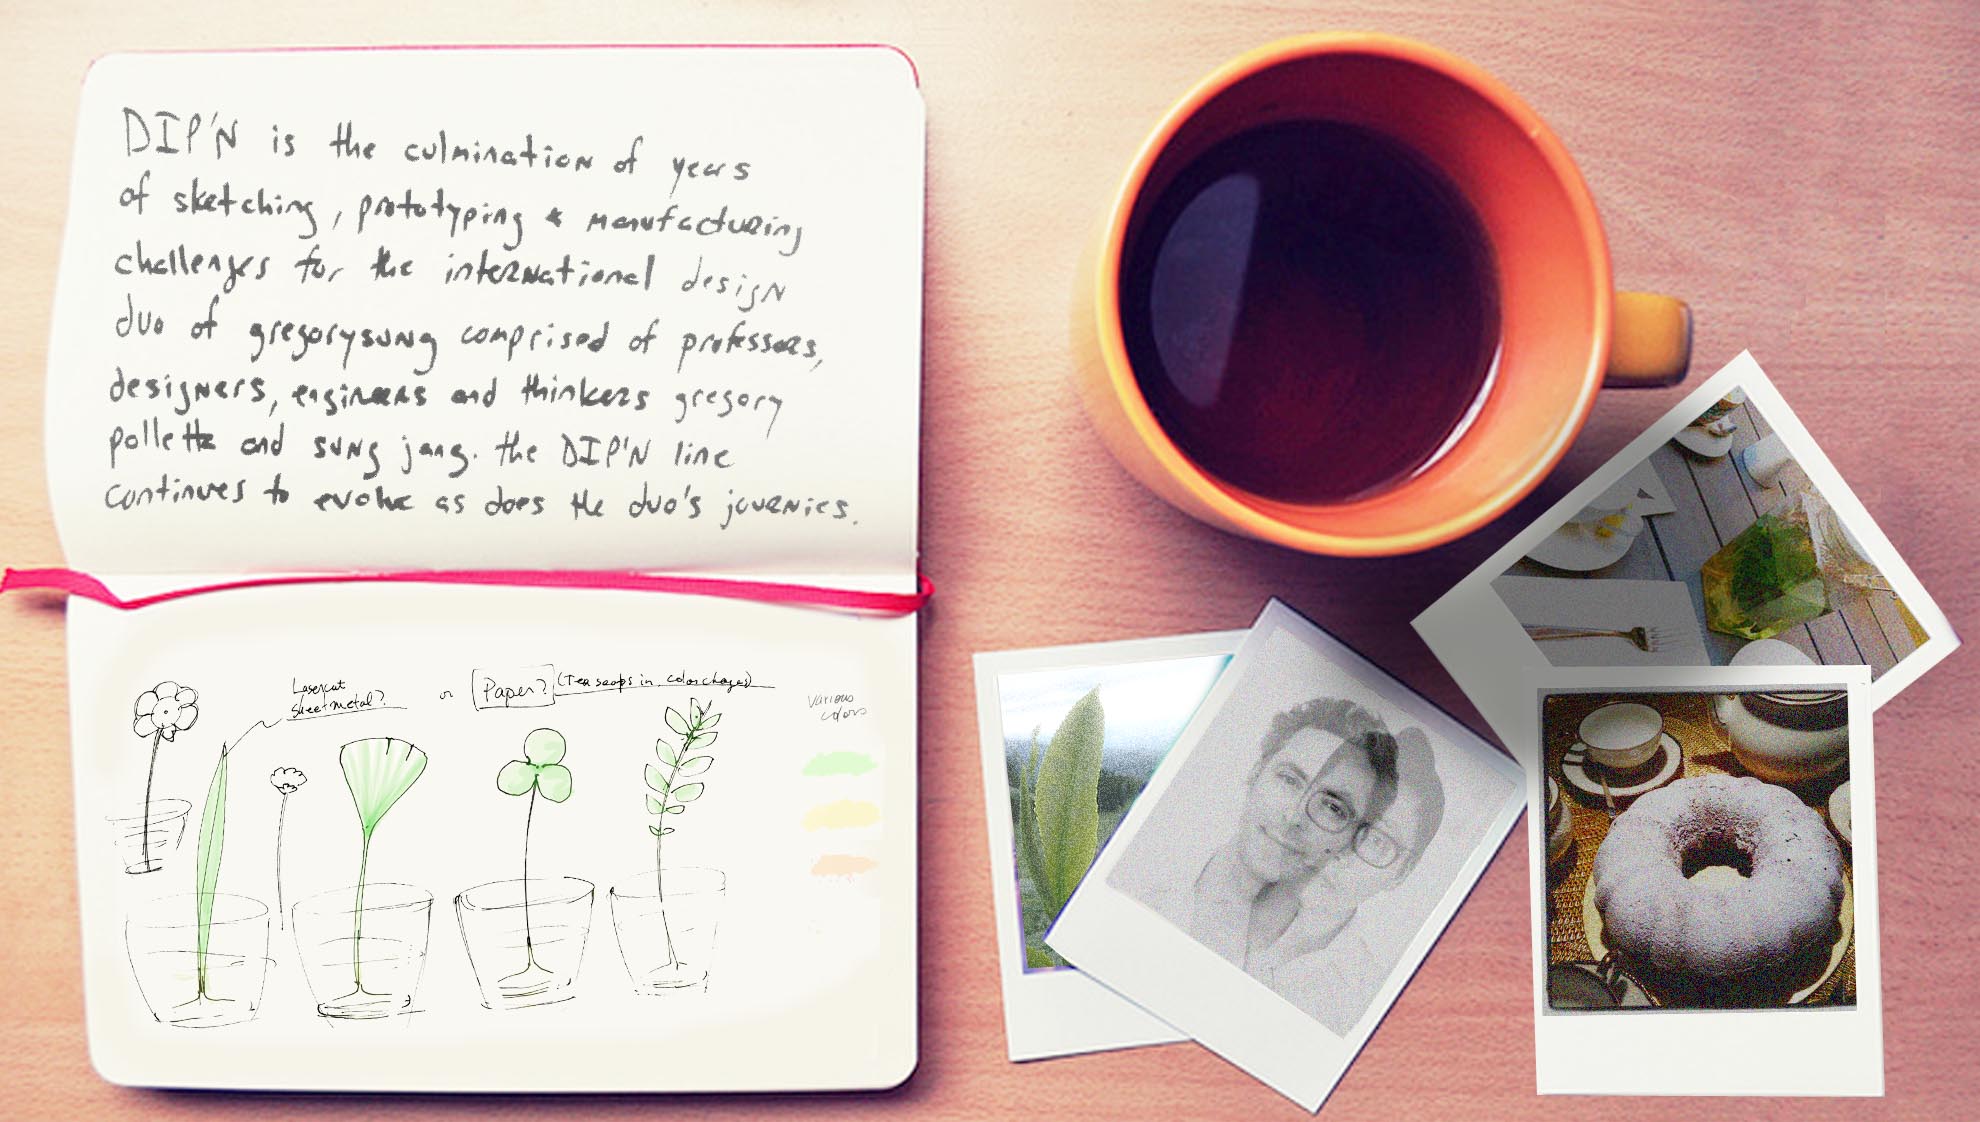 DIP'N is the culmination of years
of sketching, prototyping & manufacturing
challenges for the international design
duo of gregorysung comprised of professors,
designers, engineers and thinkers gregory
pollette and sung jang. the DIP'N line
continues to evolve as does the duo's journies.
Lasercut
Sheetmetal?
or
Paper?
(Tea soaps in, color changes)
various
colors